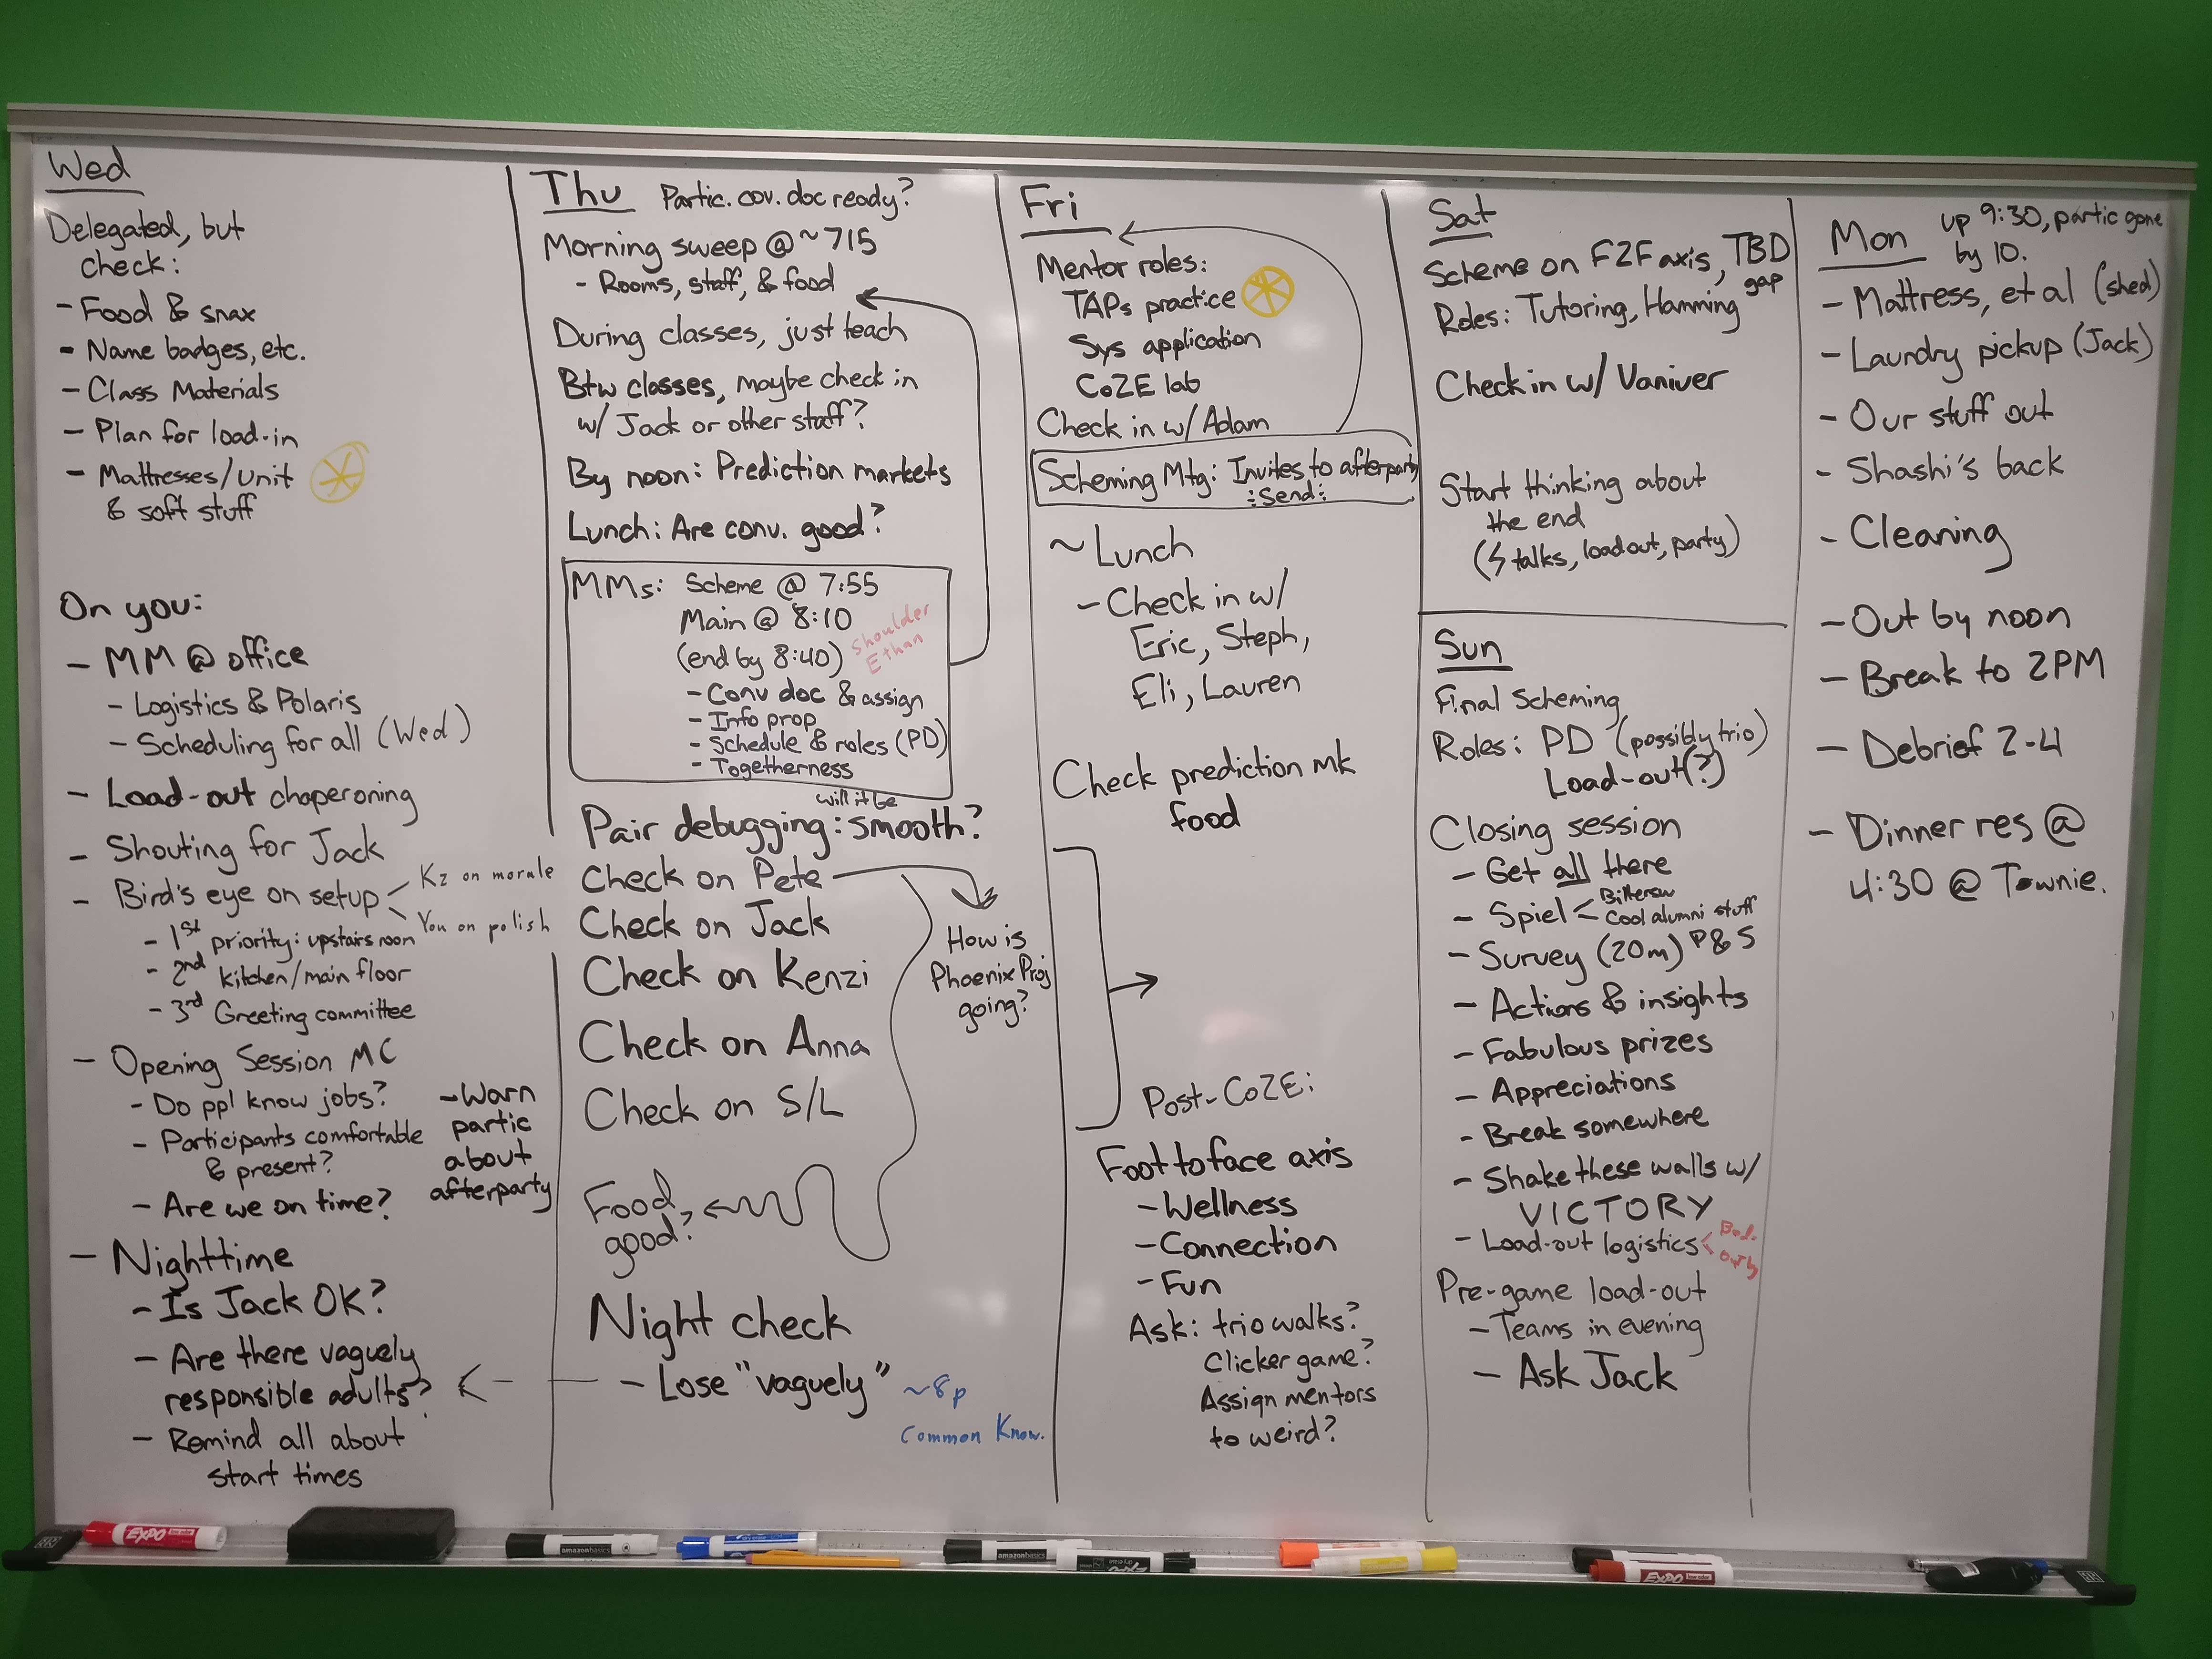 Wed
Delegated, but
check:
- Food & snax
- Name badges, etc.
- Class Materials
- Plan for load-in
- Mattresses/Unit
& soft stuff
On you:
- MM @ office
- Logistics & Polaris
- Scheduling for all (Wed)
- Load-out chaperoning
- Shouting for Jack
- Bird's eye on setup
Kz on morale
You on polish
- 1st priority: upstairs room
- 2nd kitchen/main floor
- 3rd Greeting committee
- Opening Session MC
- Do ppl know jobs?
- Participants comfortable
& present?
- Are we on time?
- Warn
partic
about
afterparty
- Nighttime
- Is Jack OK?
- Are there vaguely
responsible adults?
- Remind all about
start times
Thu Partic. cov. doc ready?
Morning sweep @ ~715
- Rooms, staff, & food
During classes, just teach
Btw classes, maybe check in
w/ Jack or other staff?
By noon: Prediction markets
Lunch: Are conv. good?
MMs: Scheme @ 7:55
Main @ 8:10
(end by 8:40)
Shoulder
Ethan
- Conv doc & assign
- Info prop
- Schedule & roles (PD)
- Togetherness
will it be
Pair debugging: smooth?
Check on Pete
Check on Jack
Check on Kenzi
Check on Anna
Check on S/L
How is
Phoenix Proj
going?
Food
good?
Night check
- Lose "vaguely"
~8p
Common Know.
Fri
Mentor roles:
TAPs practice
Sys application
CoZE lab
Check in w/ Adam
Scheming Mtg: Invites to afterparty
Send
~ Lunch
- Check in w/
Eric, Steph,
Eli, Lauren
Check prediction mk
food
Post-CoZE:
Foot to face axis
- Wellness
- Connection
- Fun
Ask: trio walks?
Clicker game?
Assign mentors
to weird?
Sat
Scheme on F2F axis, TBD
gap
Roles: Tutoring, Hamming
Check in w/ Vaniver
Start thinking about
the end
(ϟ talks, loadout, party)
Sun
Final scheming
Roles: PD (possibly trio)
Load-out(?)
Closing session
- Get all there
- Spiel
Bittersw
Cool alumni stuff
- Survey (20m) P&S
- Actions & insights
- Fabulous prizes
- Appreciations
- Break somewhere
- Shake these walls w/
VICTORY
- Load-out logistics
Pre-game load-out
- Teams in evening
- Ask Jack
Mon up 9:30, partic gone
by 10.
- Mattress, et al (shed)
- Laundry pickup (Jack)
- Our stuff out
- Shashi's back
- Cleaning
- Out by noon
- Break to 2PM
- Debrief 2-4
- Dinner res @
4:30 @ Townie.
EXPO
amazonbasics
amazonbasics
EXPO